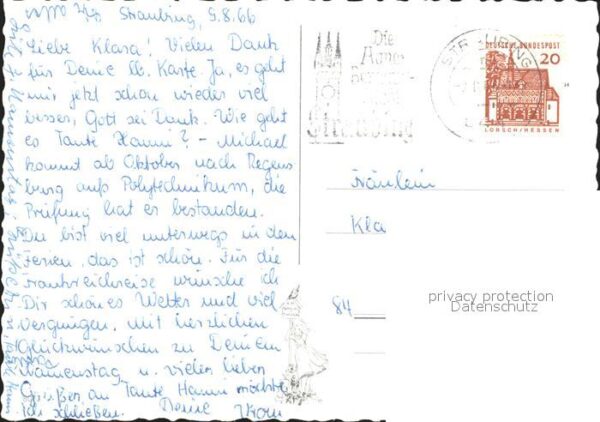 Straubing, 9.8.66
Liebe Klara! Vielen Dank
für Deine lb. Karte. Ja, es geht
mir jetzt schon wieder viel
besser, Gott sei Dank. Wie geht
es Tante Hanni? - Michael
kommt ab Oktober nach Regens
burg aufs Polytechnikum, die
Prüfung hat er bestanden.
Du bist viel unterwegs in den
Ferien, das ist schön. Für die
Frankreichreise wünsche ich
Dir schönes Wetter und viel
Vergnügen. Mit herzlichen
Glückwünschen zu Deinem
Namenstag u. vielen lieben
Grüßen an Tante Hanni möchte
ich schließen. Deine
Die
Straubing
STRAUBING
DEUTSCHE BUNDESPOST
20
LORSCH/HESSEN
Fräulein
Kla
84
privacy protection
Datenschutz